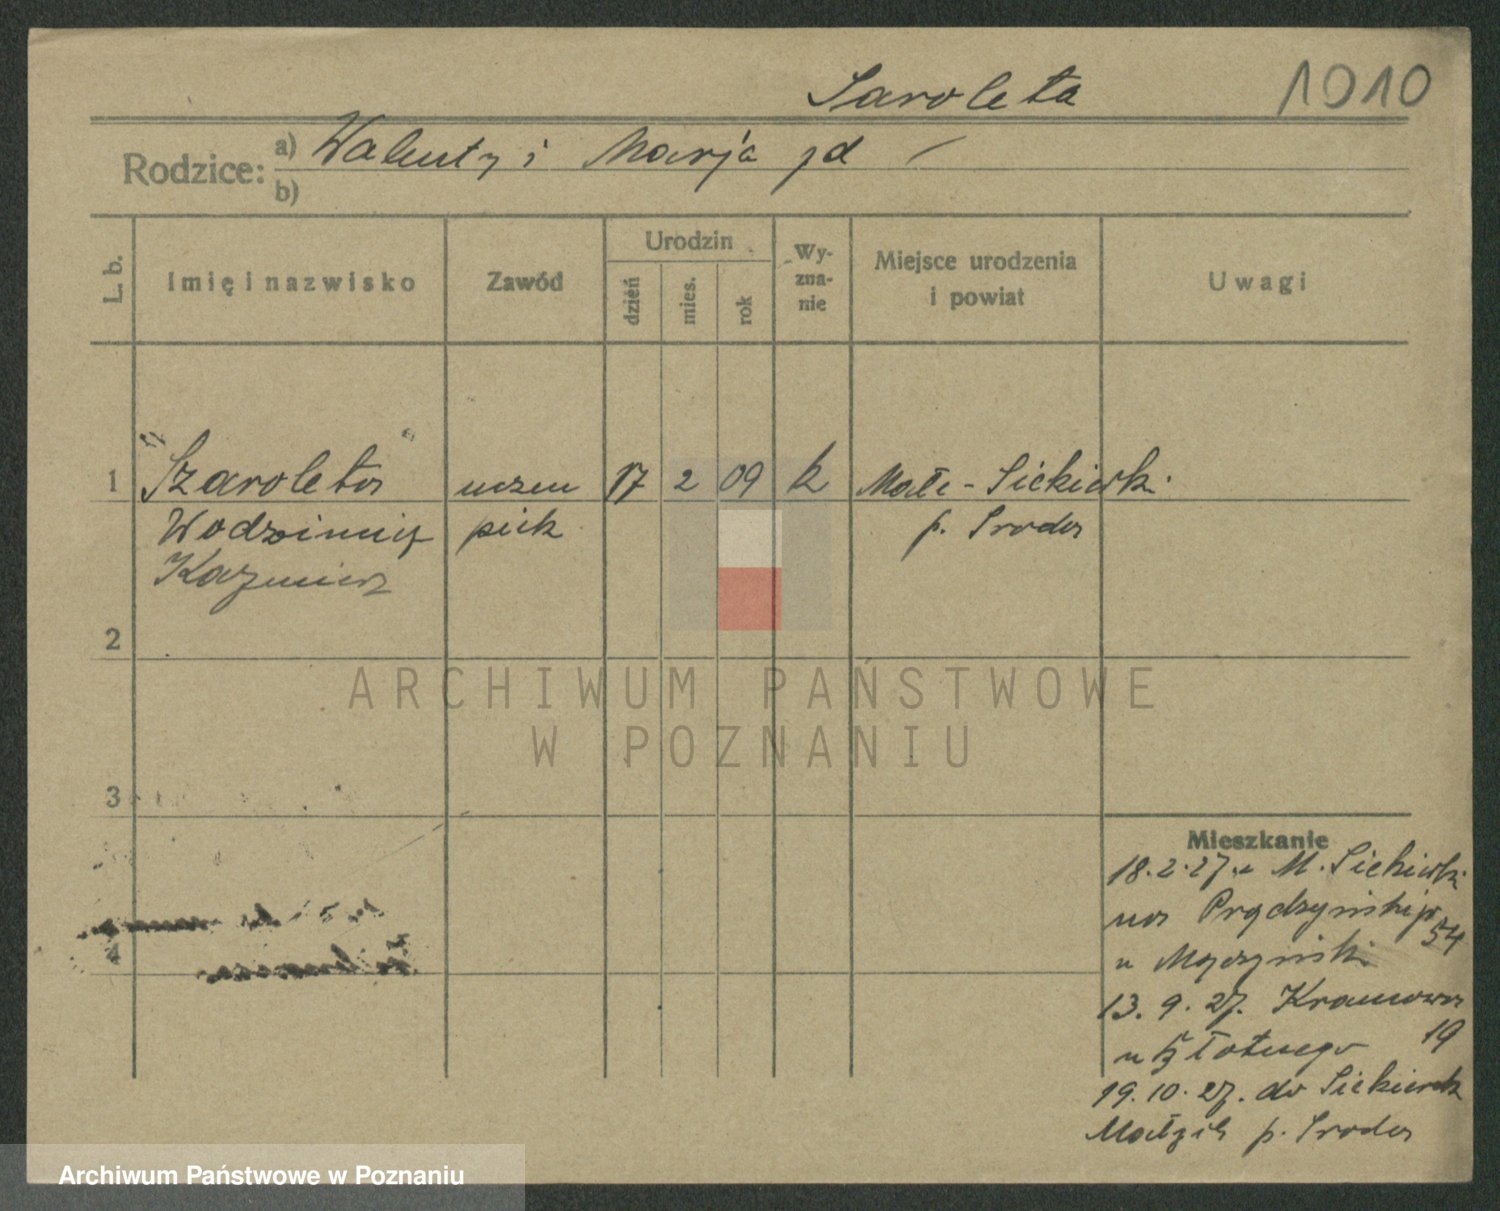 Saroleta 1010
Rodzice: a) Walenty i Marja zd —
b)
L. b. Imię i nazwisko Zawód Urodzin dzień mies. rok Wy-zna-nie Miejsce urodzenia i powiat Uwagi
1 "Szaroleta" uczeń 17 2 09 k Małe-Siekierki
Wodzimierz piek p. Środa
Kazimierz
2
ARCHIWUM PAŃSTWOWE
W POZNANIU
3
4
Mieszkanie
18.2.27. z M. Siekierki
na Prądzyńskiego
54
u
13. 9. 27. Kramowa
19
u
19. 10. 27. do Siekierek
Małych p. Środa
Archiwum Państwowe w Poznaniu